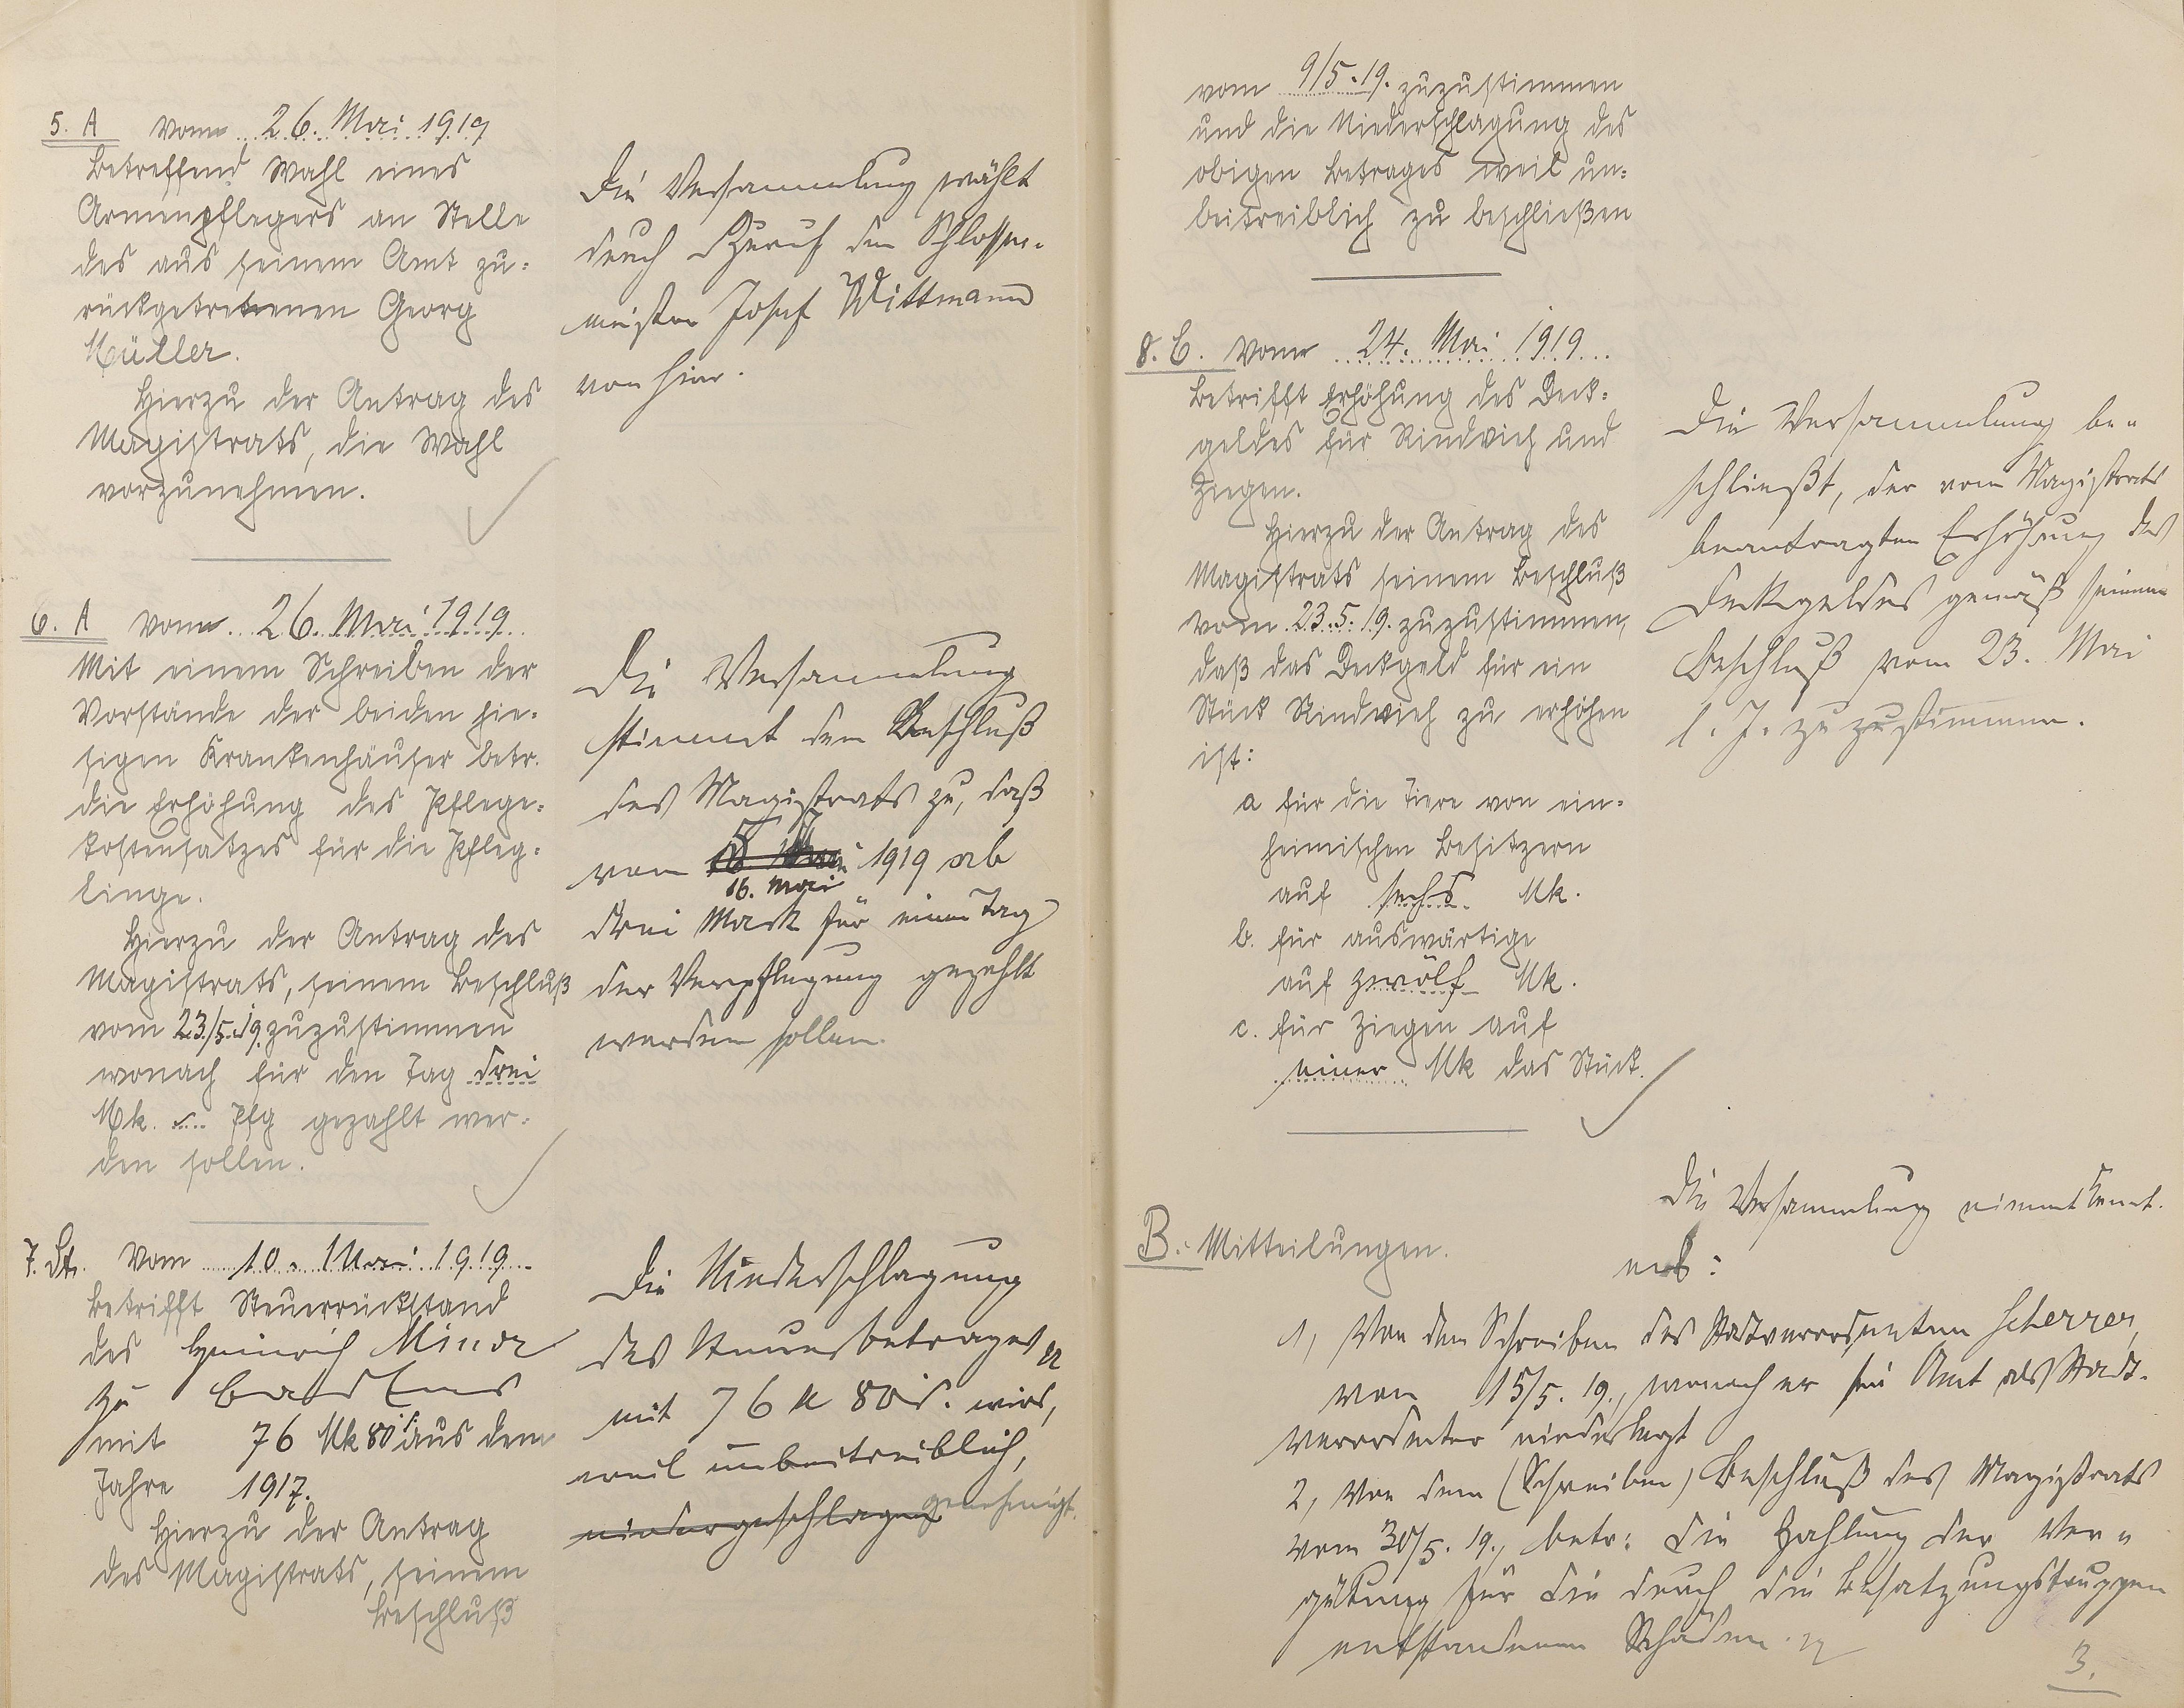 5. A vom 26. Mai 1919
Betreffend Wahl eines
Armenpflegers an Stelle
des aus seinem Amt zu-
rückgetretenen Georg
Müller.
Hierzu der Antrag des
Magistrats, die Wahl
vorzunehmen.
Die Versammlung wählt
durch Zuruf den Schlosser-
meister Josef Wittmann
von hier.
6. A vom 26. Mai 1919
Mit einem Schreiben der
Vorstände der beiden hie-
sigen Krankenhäuser betr.
die Erhöhung des Pflege-
kostensatzes für die Pfleg-
linge.
Hierzu der Antrag des
Magistrats, seinem Beschluß
vom 23./5.19. zuzustimmen
wonach für den Tag drei
Mk. Pfg gezahlt wer-
den sollen.
Die Versammlung
stimmt dem Beschluß
des Magistrats zu, daß
vom 1919 ab
16. Mai
drei Mark für einen Tag
der Verpflegung gezahlt
werden sollen.
7. St. Vom 10. Mai 1919
Betrifft Steuerrückstand
des Heinrich
zu Bad Ems
mit 76 Mk 80 aus dem
Jahre 1917.
Hierzu der Antrag
des Magistrats, seinem
Beschluß
Die Niederschlagung
des Steuerbetrages
mit 76 M 80 wird,
weil unbeitreiblich,
niedergeschlagen genehmigt.
vom 9/5.19. zuzustimmen
und die Niederschlagung des
obigen Betrages weil un-
beitreiblich zu beschließen
8. C. vom 24. Mai 1919
Betrifft Erhöhung des Deck-
geldes für Rindvieh und
Ziegen.
Hierzu der Antrag des
Magistrats seinem Beschluß
vom 23.5.19. zuzustimmen,
daß das Deckgeld für ein
Stück Rindvieh zu erhöhen
ist:
a für die Tiere von ein-
heimischen Besitzern
auf sechs Mk.
b. für auswärtige
auf zwölf Mk.
c. für Ziegen auf
einer Mk das Stück.
Die Versammlung be-
schließt, der vom Magistrats
beantragten Erhöhung des
Deckgeldes gemäß seinem
Beschluß vom 23. Mai
l. J. zuzustimmen.
B. Mitteilungen.
Die Versammlung nimmt Kennt-
nis:
1, Von dem Schreiben des Stadtverordneten Scherrer,
vom 15/5. 19., wonach er sein Amt als Stadt-
verordneter niederlegt
2, Von dem (Schreiben) Beschluß des Magistrats
vom 30/5. 19., betr: die Zahlung der Ver-
gütung für die durch die Besatzungstruppen
entstandenen Schäden.
3.